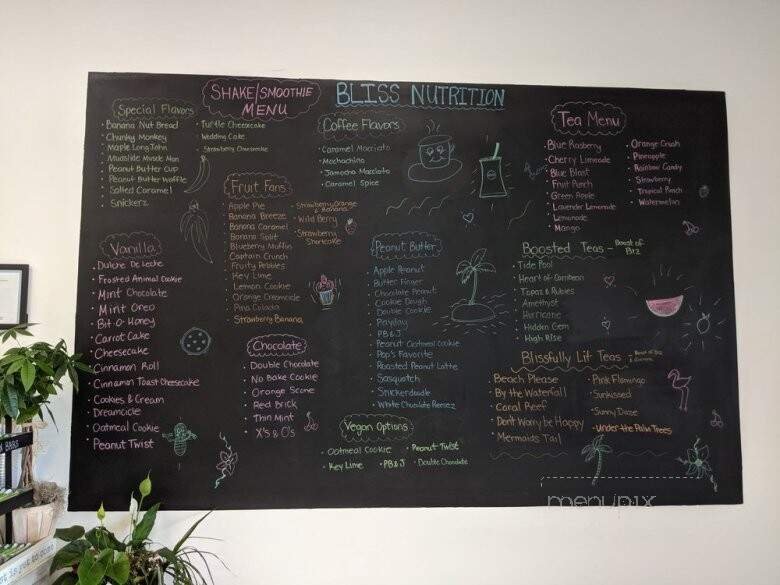 SHAKE/SMOOTHIE
MENU
BLISS NUTRITION
Special Flavors
• Banana Nut Bread
• Chunky Monkey
• Maple Long John
• Mudslide Muscle Man
• Peanut Butter Cup
• Peanut Butter Waffle
• Salted Caramel
• Snickerz
• Turtle Cheesecake
• Wedding Cake
• Strawberry Cheesecake
Vanilla
• Dulche De Leche
• Frosted Animal Cookie
• Mint Chocolate
• Mint Oreo
• Bit-O-Honey
• Carrot Cake
• Cheesecake
• Cinnamon Roll
• Cinnamon Toast Cheesecake
• Cookies & Cream
• Dreamcicle
• Oatmeal Cookie
• Peanut Twist
Fruit Fans
• Apple Pie
• Banana Breeze
• Banana Caramel
• Banana Split
• Blueberry Muffin
• Captain Crunch
• Fruity Pebbles
• Key Lime
• Lemon Cookie
• Orange Creamcicle
• Pina Colada
• Strawberry Banana
• Strawberry, Orange
& Banana
• Wild Berry
• Strawberry
Shortcake
Chocolate
• Double Chocolate
• No Bake Cookie
• Orange Scone
• Red Brick
• Thin Mint
• X's & O's
Coffee Flavors
• Caramel Macciato
• Mochachino
• Jamocha Macciato
• Caramel Spice
Peanut Butter
• Apple Peanut
• Butter Finger
• Chocolate Peanut
• Cookie Dough
• Double Cookie
• Payday
• PB&J
• Peanut Oatmeal Cookie
• Pop's Favorite
• Roasted Peanut Latte
• Sasquatch
• Snickerdoodle
• White Chocolate Reesez
Vegan Options
• Oatmeal Cookie
• Peanut Twist
• Key Lime
• PB&J
• Double Chocolate
Tea Menu
• Blue Rasberry
• Cherry Limeade
• Blue Blast
• Fruit Punch
• Green Apple
• Lavender Lemonade
• Lemonade
• Mango
• Orange Crush
• Pineapple
• Rainbow Candy
• Strawberry
• Tropical Punch
• Watermelon
Boosted Teas - Boost of
B12
• Tide Pool
• Heart of Carribean
• Topaz & Rubies
• Amethyst
• Hurricane
• Hidden Gem
• High Rise
Blissfully Lit Teas
• Beach Please
• By the Waterfall
• Coral Reef
• Don't Worry be Happy
• Mermaids Tail
• Pink Flamingo
• Sunkissed
• Sunny Daze
• Under the Palm Trees
menupix
BARS